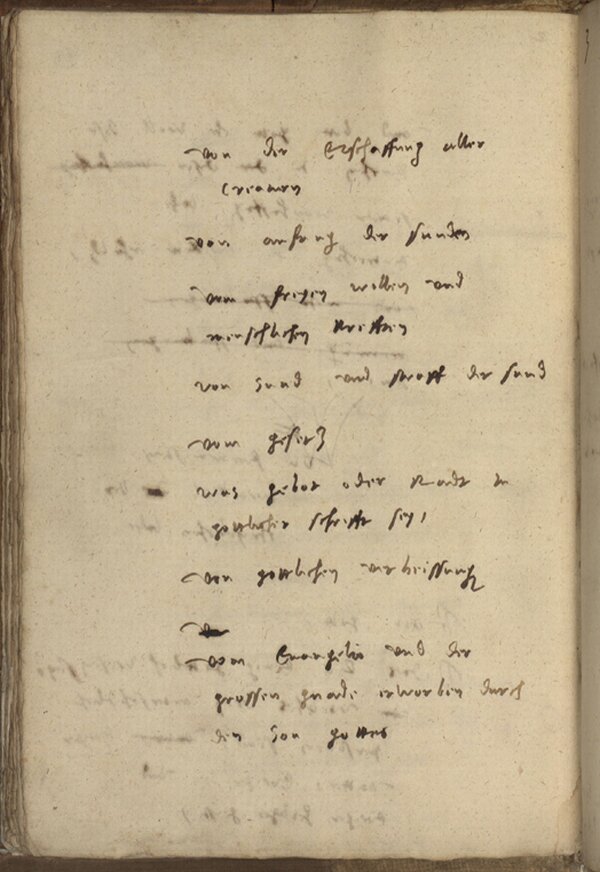 von der Erschaffung aller
Creaturn
von anfang der sunden
vom freyen willen und
menschlichen krefften
von Sund und straff der sund
vom gesetz
was gebot oder Radt in
gottlicher schrifft sey
von gottlichen verheissung
vom Evangelio und der
grossen gnade erworben durch
den Son gottes